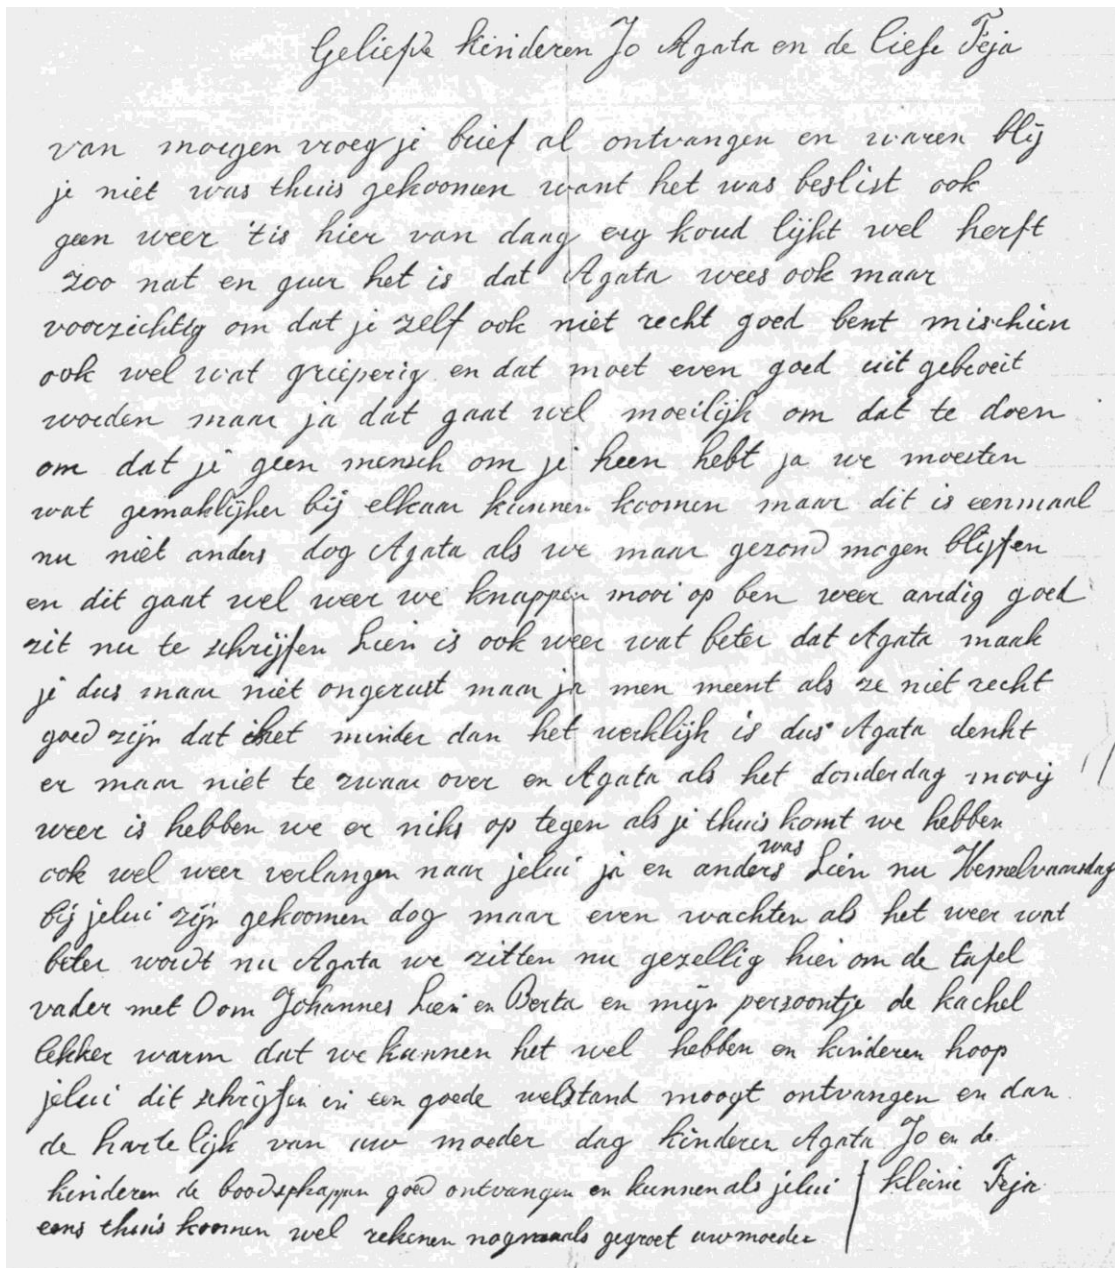 Geliefde kinderen Jo Agata en de liefe Feja
van morgen vroeg je brief al ontvangen en waren blij
je niet was thuis gekoomen want het was beslist ook
geen weer 'tis hier van daag erg koud lijkt wel herft
zoo nat en guur het is dat Agata wees ook maar
voorzichtig om dat je zelf ook niet recht goed bent mischien
ook wel wat grieperig en dat moet even goed uit gebroeit
worden maar ja dat gaat wel moeilijk om dat te doen
om dat je geen mensch om je heen hebt ja we moesten
wat gemaklijker bij elkaar kunnen koomen maar dit is eenmaal
nu niet anders dog Agata als we maar gezond mogen blijfen
en dit gaat wel weer we knappen mooi op ben weer aardig goed
zit nu te schrijfen Lien is ook weer wat beter dat Agata maak
je dus maar niet ongerust maar ja men meent als ze niet recht
goed zijn dat het minder dan het werklijk is dus Agata denkt
er maar niet te zwaar over en Agata als het donderdag mooij
weer is hebben we er niks op tegen als je thuis komt we hebben
ook wel weer verlangen naar jelui ja en anders was Lien nu Hemelvaarsdag
bij jelui zijn gekoomen dog maar even wachten als het weer wat
beter wordt nu Agata we zitten nu gezellig hier om de tafel
vader met Oom Johannes Lien en Berta en mijn persoontje de kachel
lekker warm dat we kunnen het wel hebben en kinderen hoop
jelui dit schrijfen in een goede welstand moogt ontvangen en dan
de hartelijk van uw moeder dag kinderen Agata Jo en de
kleine Feja
kinderen de boodschappen goed ontvangen en kunnen als jelui
eens thuis koomen wel rekenen nogmaals gegroet uw moeder